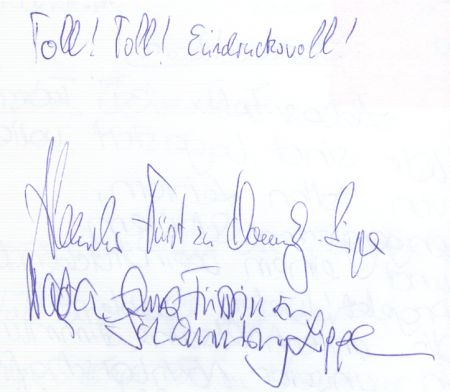 Toll! Toll! Eindrucksvoll!
Alexander Fürst zu Schaumbg. Lippe
Nadja Anna Fürstin zu
Schaumburg Lippe